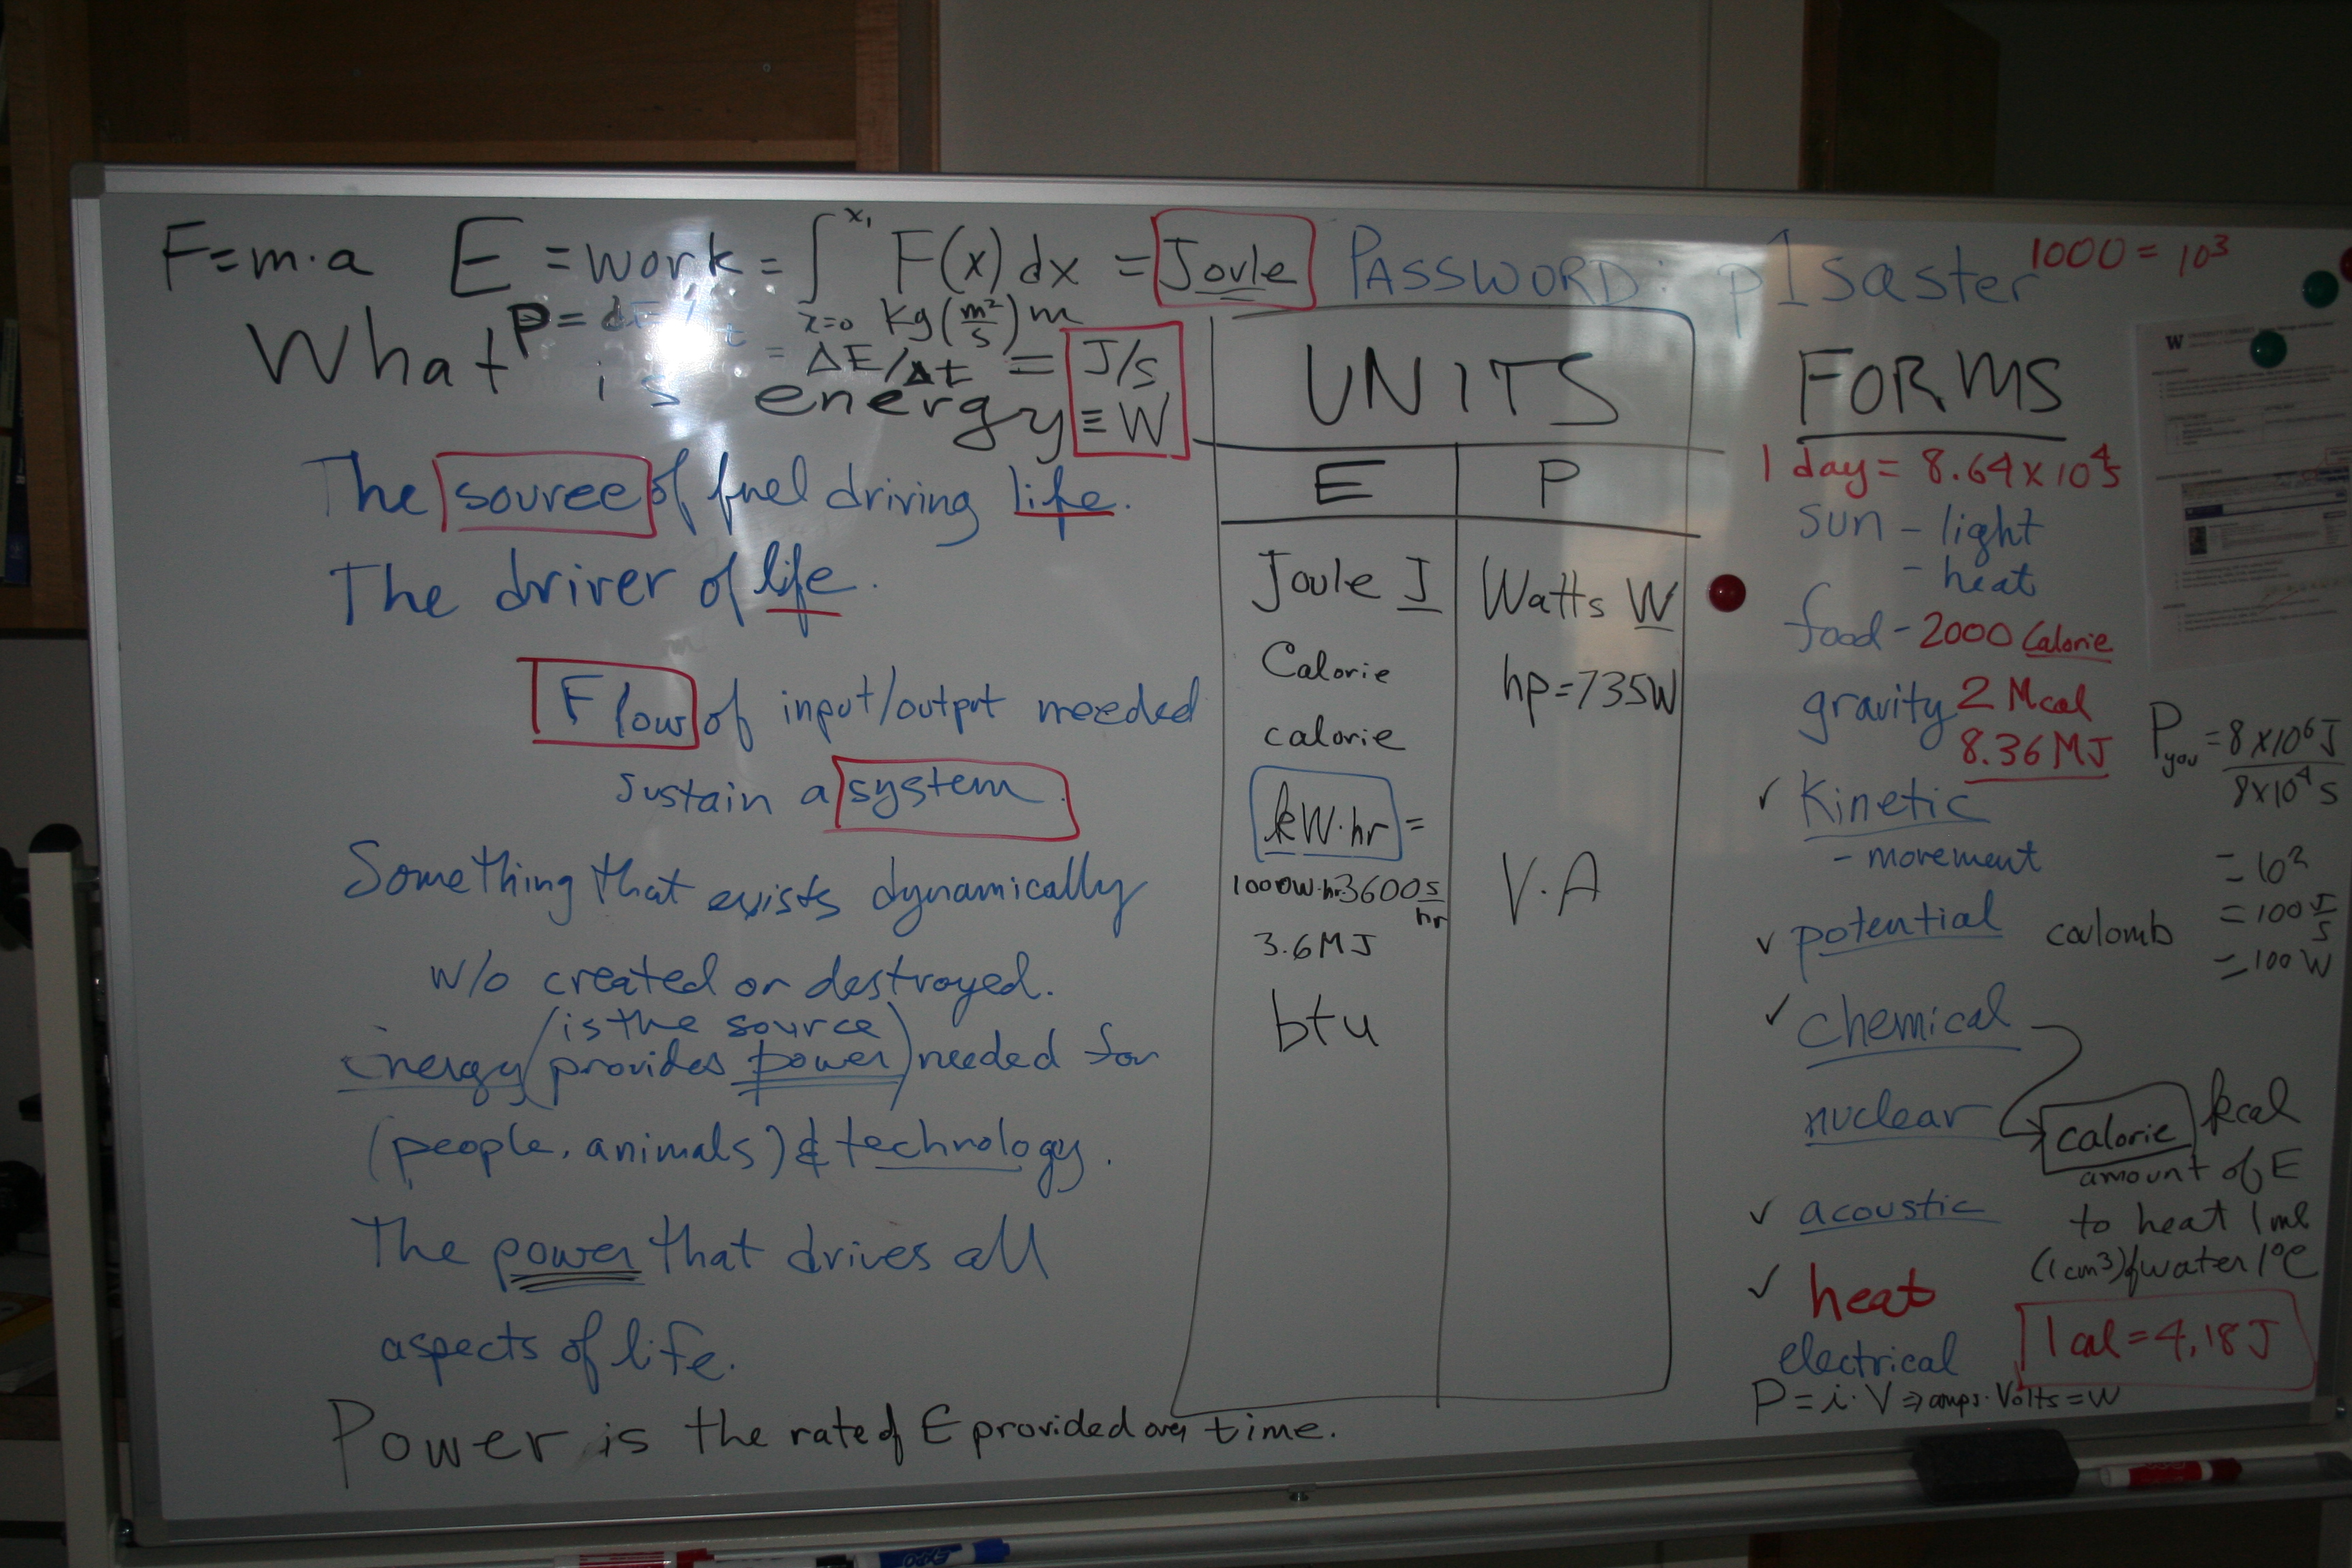 F=m·a E = work = ∫ x₁ x=0 F(x) dx = Joule
PASSWORD: p1saster
1000 = 10³
kg(m²/s)m
P = dE
= ΔE/Δt = J/s
≡ W
What is energy
The source of fuel driving life.
The driver of life.
Flow of input/output needed
sustain a system.
Something that exists dynamically
w/o created or destroyed.
(is the source
Energy provides power) needed for
(people, animals) & technology.
The power that drives all
aspects of life.
Power is the rate of E provided over time.
UNITS
E P
Joule J Watts W
Calorie hp=735W
calorie
kW·hr =
1000W·hr·3600 s/hr V·A
3.6MJ
btu
FORMS
1 day = 8.64×10⁴s
sun - light
- heat
food - 2000 Calorie
gravity 2 Mcal
8.36 MJ
✓ Kinetic
- movement
✓ potential coulomb
✓ chemical
nuclear
✓ acoustic
✓ heat
electrical
P = i·V ⇒ amps·Volts = W
P you = 8×10⁶J / 8×10⁴s
= 10²
= 100 J/s
= 100 W
calorie kcal
amount of E
to heat 1 ml
(1 cm³) of water 1°C
1 cal = 4,18 J
W
EXPO